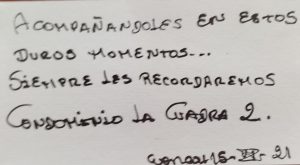 Acompañandoles en estos
duros momentos...
Siempre les recordaremos
Condominio La Cuadra 2.
15-VI-21